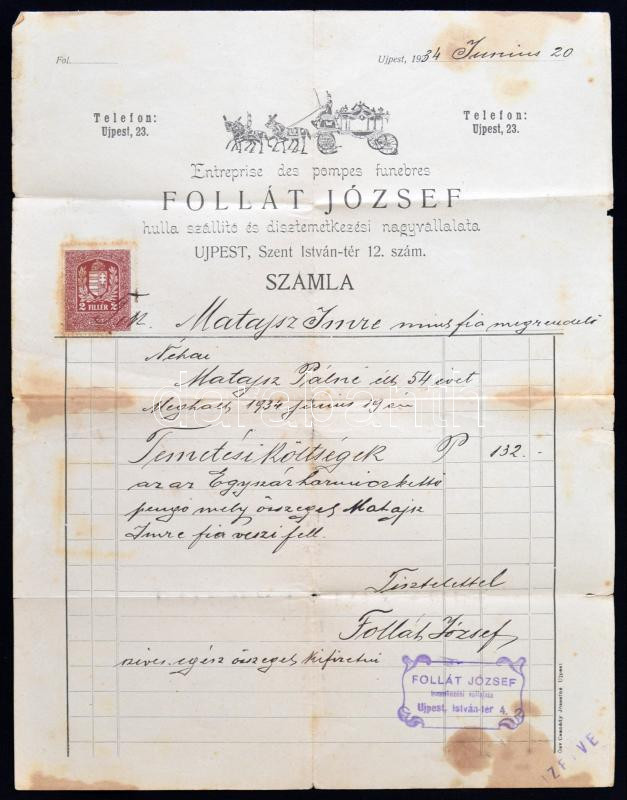 Fol.
Ujpest, 1934 Junius 20
Telefon:
Ujpest, 23.
Telefon:
Ujpest, 23.
Entreprise des pompes funebres
FOLLÁT JÓZSEF
hulla szállitó és disztemetkezési nagyvállalata
UJPEST, Szent István-tér 12. szám.
SZAMLA
2 FILLÉR 2
Matajsz Imre mint fia megrendelő
Néhai
Matajsz Pálné élt 54 évet
Meghalt 1934 junius 19 én
Temetési költségek P 132.-
az az Egyszázharminczkettő
pengő mely összeget Matajsz
Imre fia veszi fell.
Tisztelettel
Follát József
szives egész összeget kifizetni
FOLLÁT JÓZSEF
temetkezési vállalata
Ujpest, István-tér 4.
darabanth